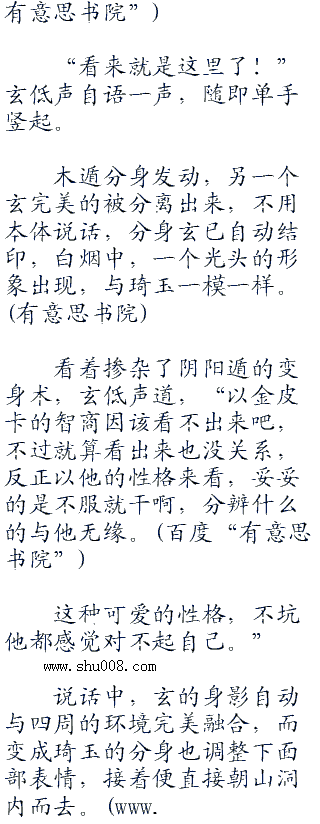 有意思书院”)
“看来就是这里了！”
玄低声自语一声，随即单手
竖起。
木遁分身发动，另一个
玄完美的被分离出来，不用
本体说话，分身玄已自动结
印，白烟中，一个光头的形
象出现，与琦玉一模一样。
(有意思书院)
看着掺杂了阴阳遁的变
身术，玄低声道，“以金皮
卡的智商因该看不出来吧，
不过就算看出来也没关系，
反正以他的性格来看，妥妥
的是不服就干啊，分辨什么
的与他无缘。(百度“有意思
书院”)
这种可爱的性格，不坑
他都感觉对不起自己。”
www.shu008.com
说话中，玄的身影自动
与四周的环境完美融合，而
变成琦玉的分身也调整下面
部表情，接着便直接朝山洞
内而去。(www.